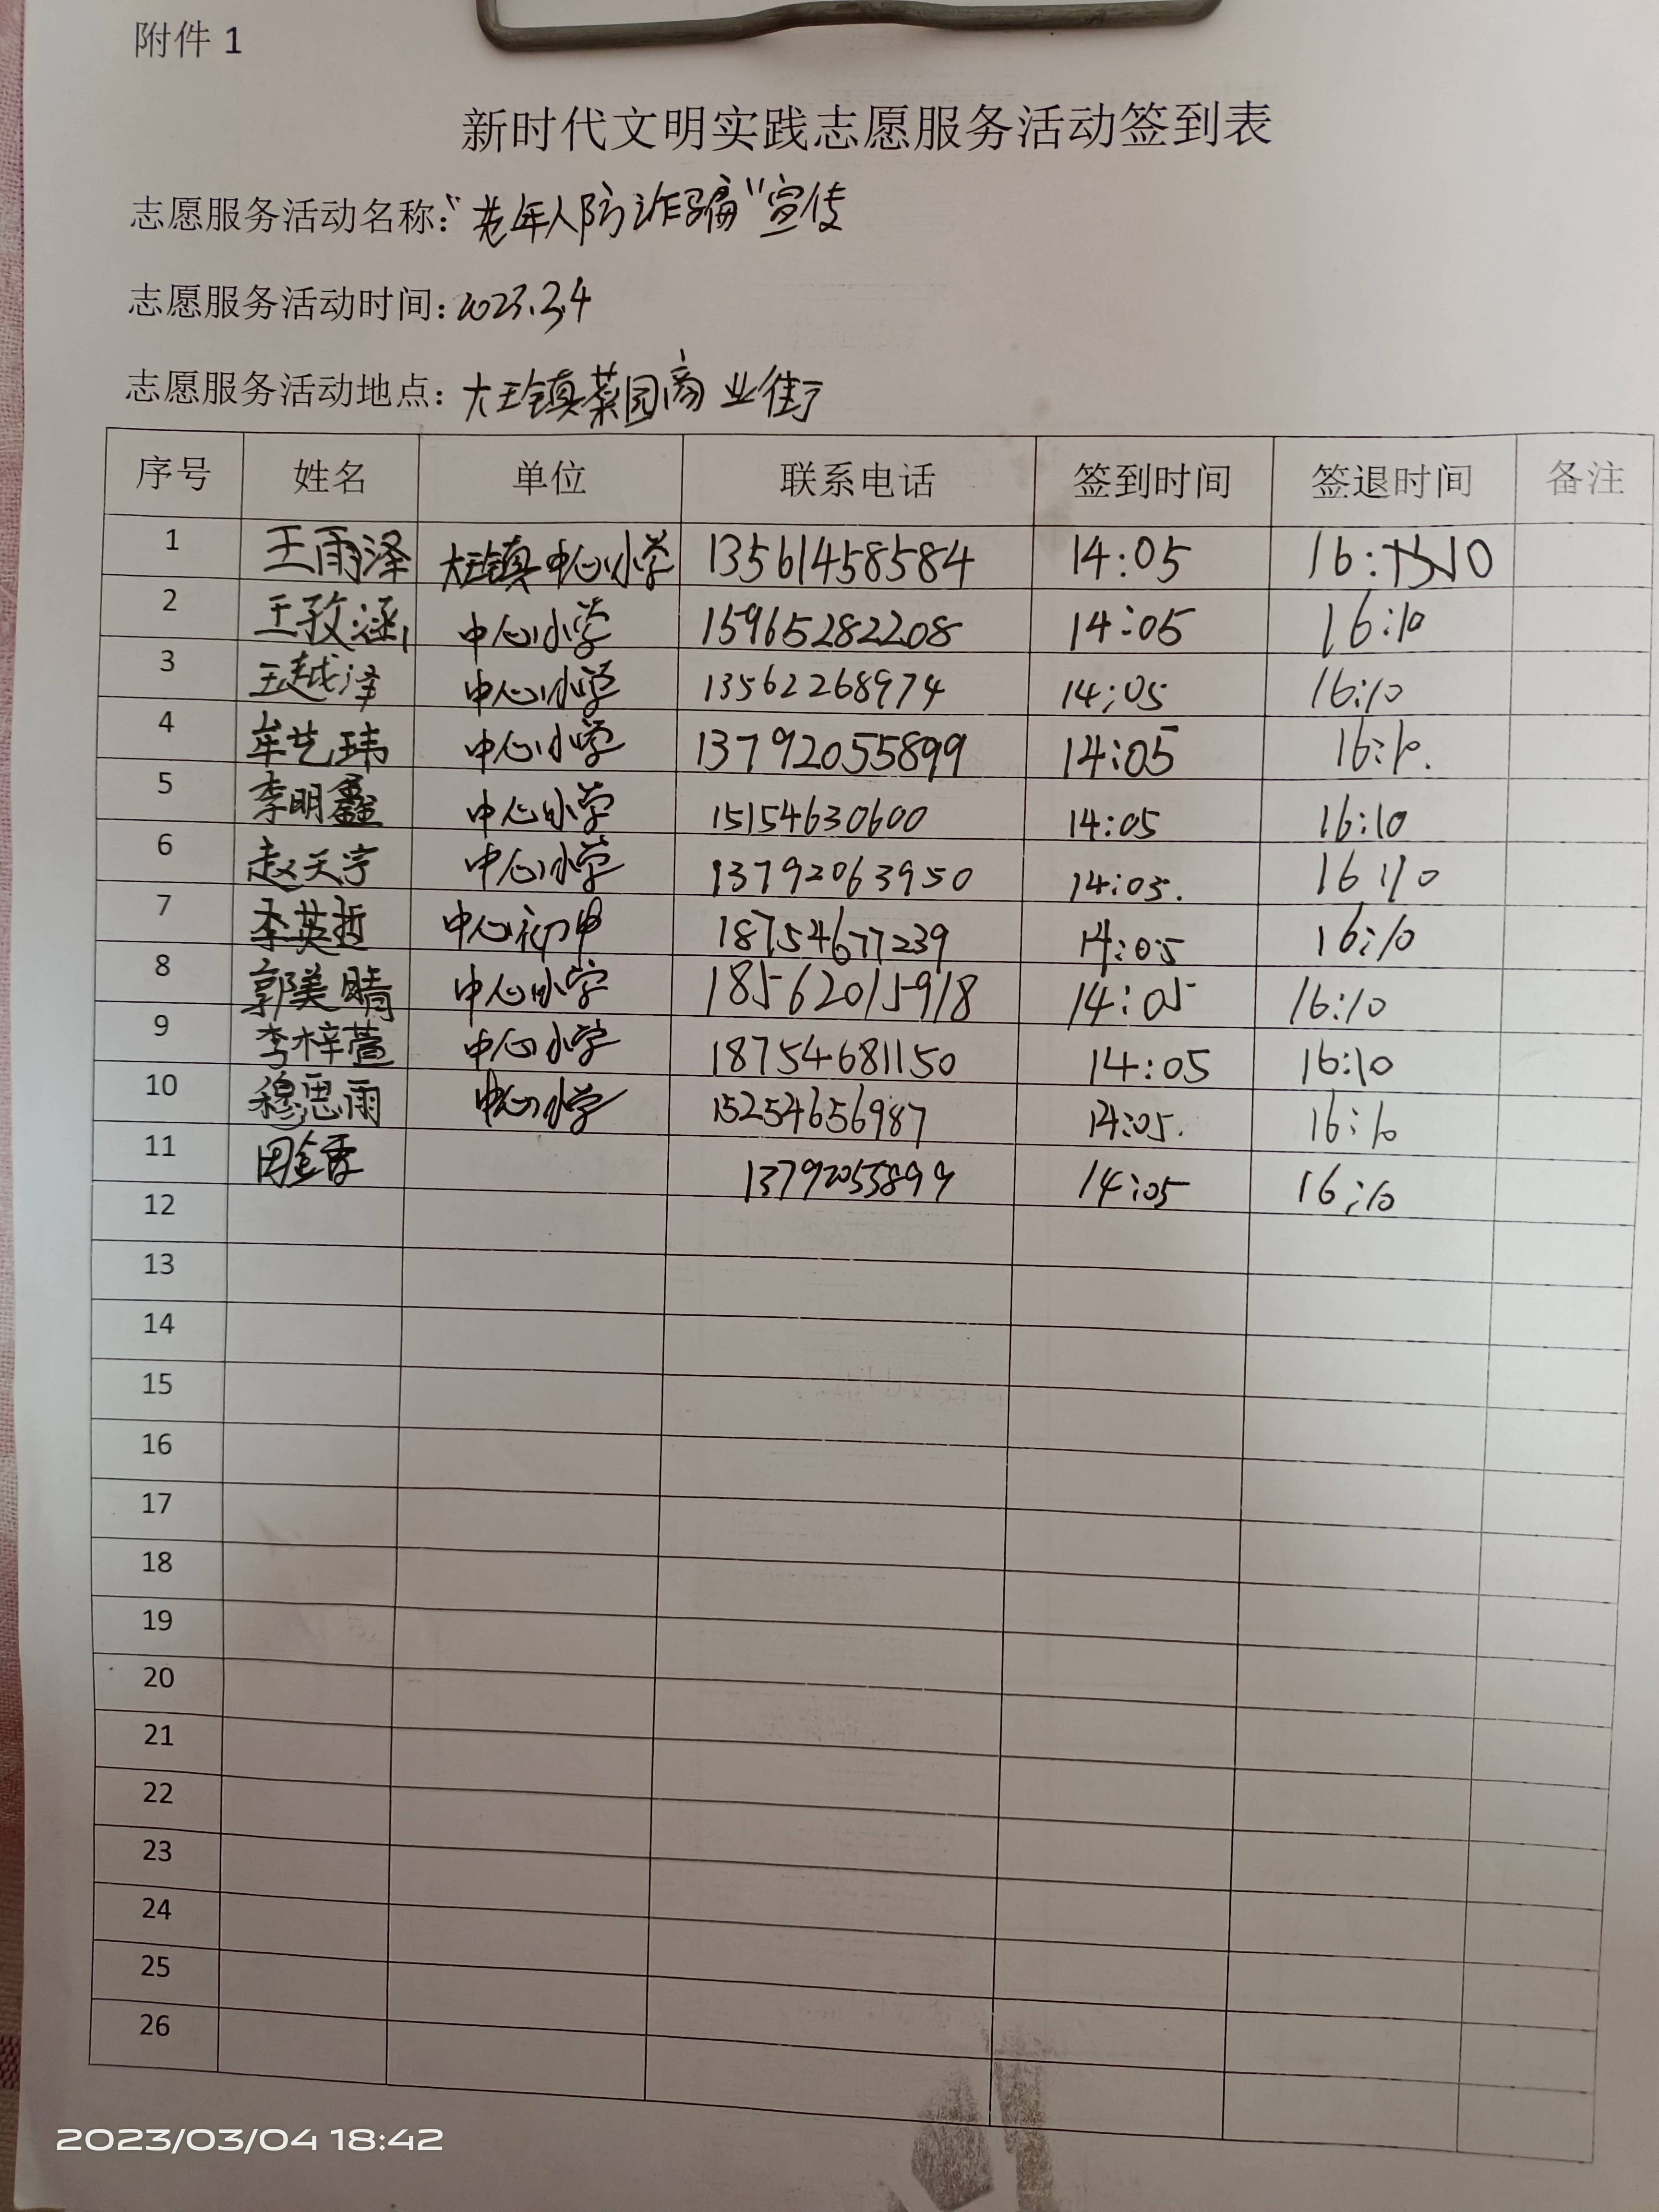 附件 1
新时代文明实践志愿服务活动签到表
志愿服务活动名称:“老年人防诈骗”宣传
志愿服务活动时间:2023.3.4
志愿服务活动地点:大王镇菜园商业街
序号 姓名 单位 联系电话 签到时间 签退时间 备注
1 王雨泽 大王镇中心小学 13561458584 14:05 16:10
2 王孜涵 中心小学 15965282208 14:05 16:10
3 王越泽 中心小学 13562268974 14:05 16:10
4 牟艺玮 中心小学 13792055899 14:05 16:10.
5 李明鑫 中心小学 15154630600 14:05 16:10
6 赵天宇 中心小学 13792063950 14:05. 16:10
7 李英哲 中心初中 18754677239 14:05 16:10
8 郭美晴 中心小学 18562015918 14:05 16:10
9 李梓萱 中心小学 18754681150 14:05 16:10
10 穆思雨 中心小学 15254656987 14:05. 16:10
11 13792055899 14:05 16:10
12
13
14
15
16
17
18
19
20
21
22
23
24
25
26
2023/03/04 18:42